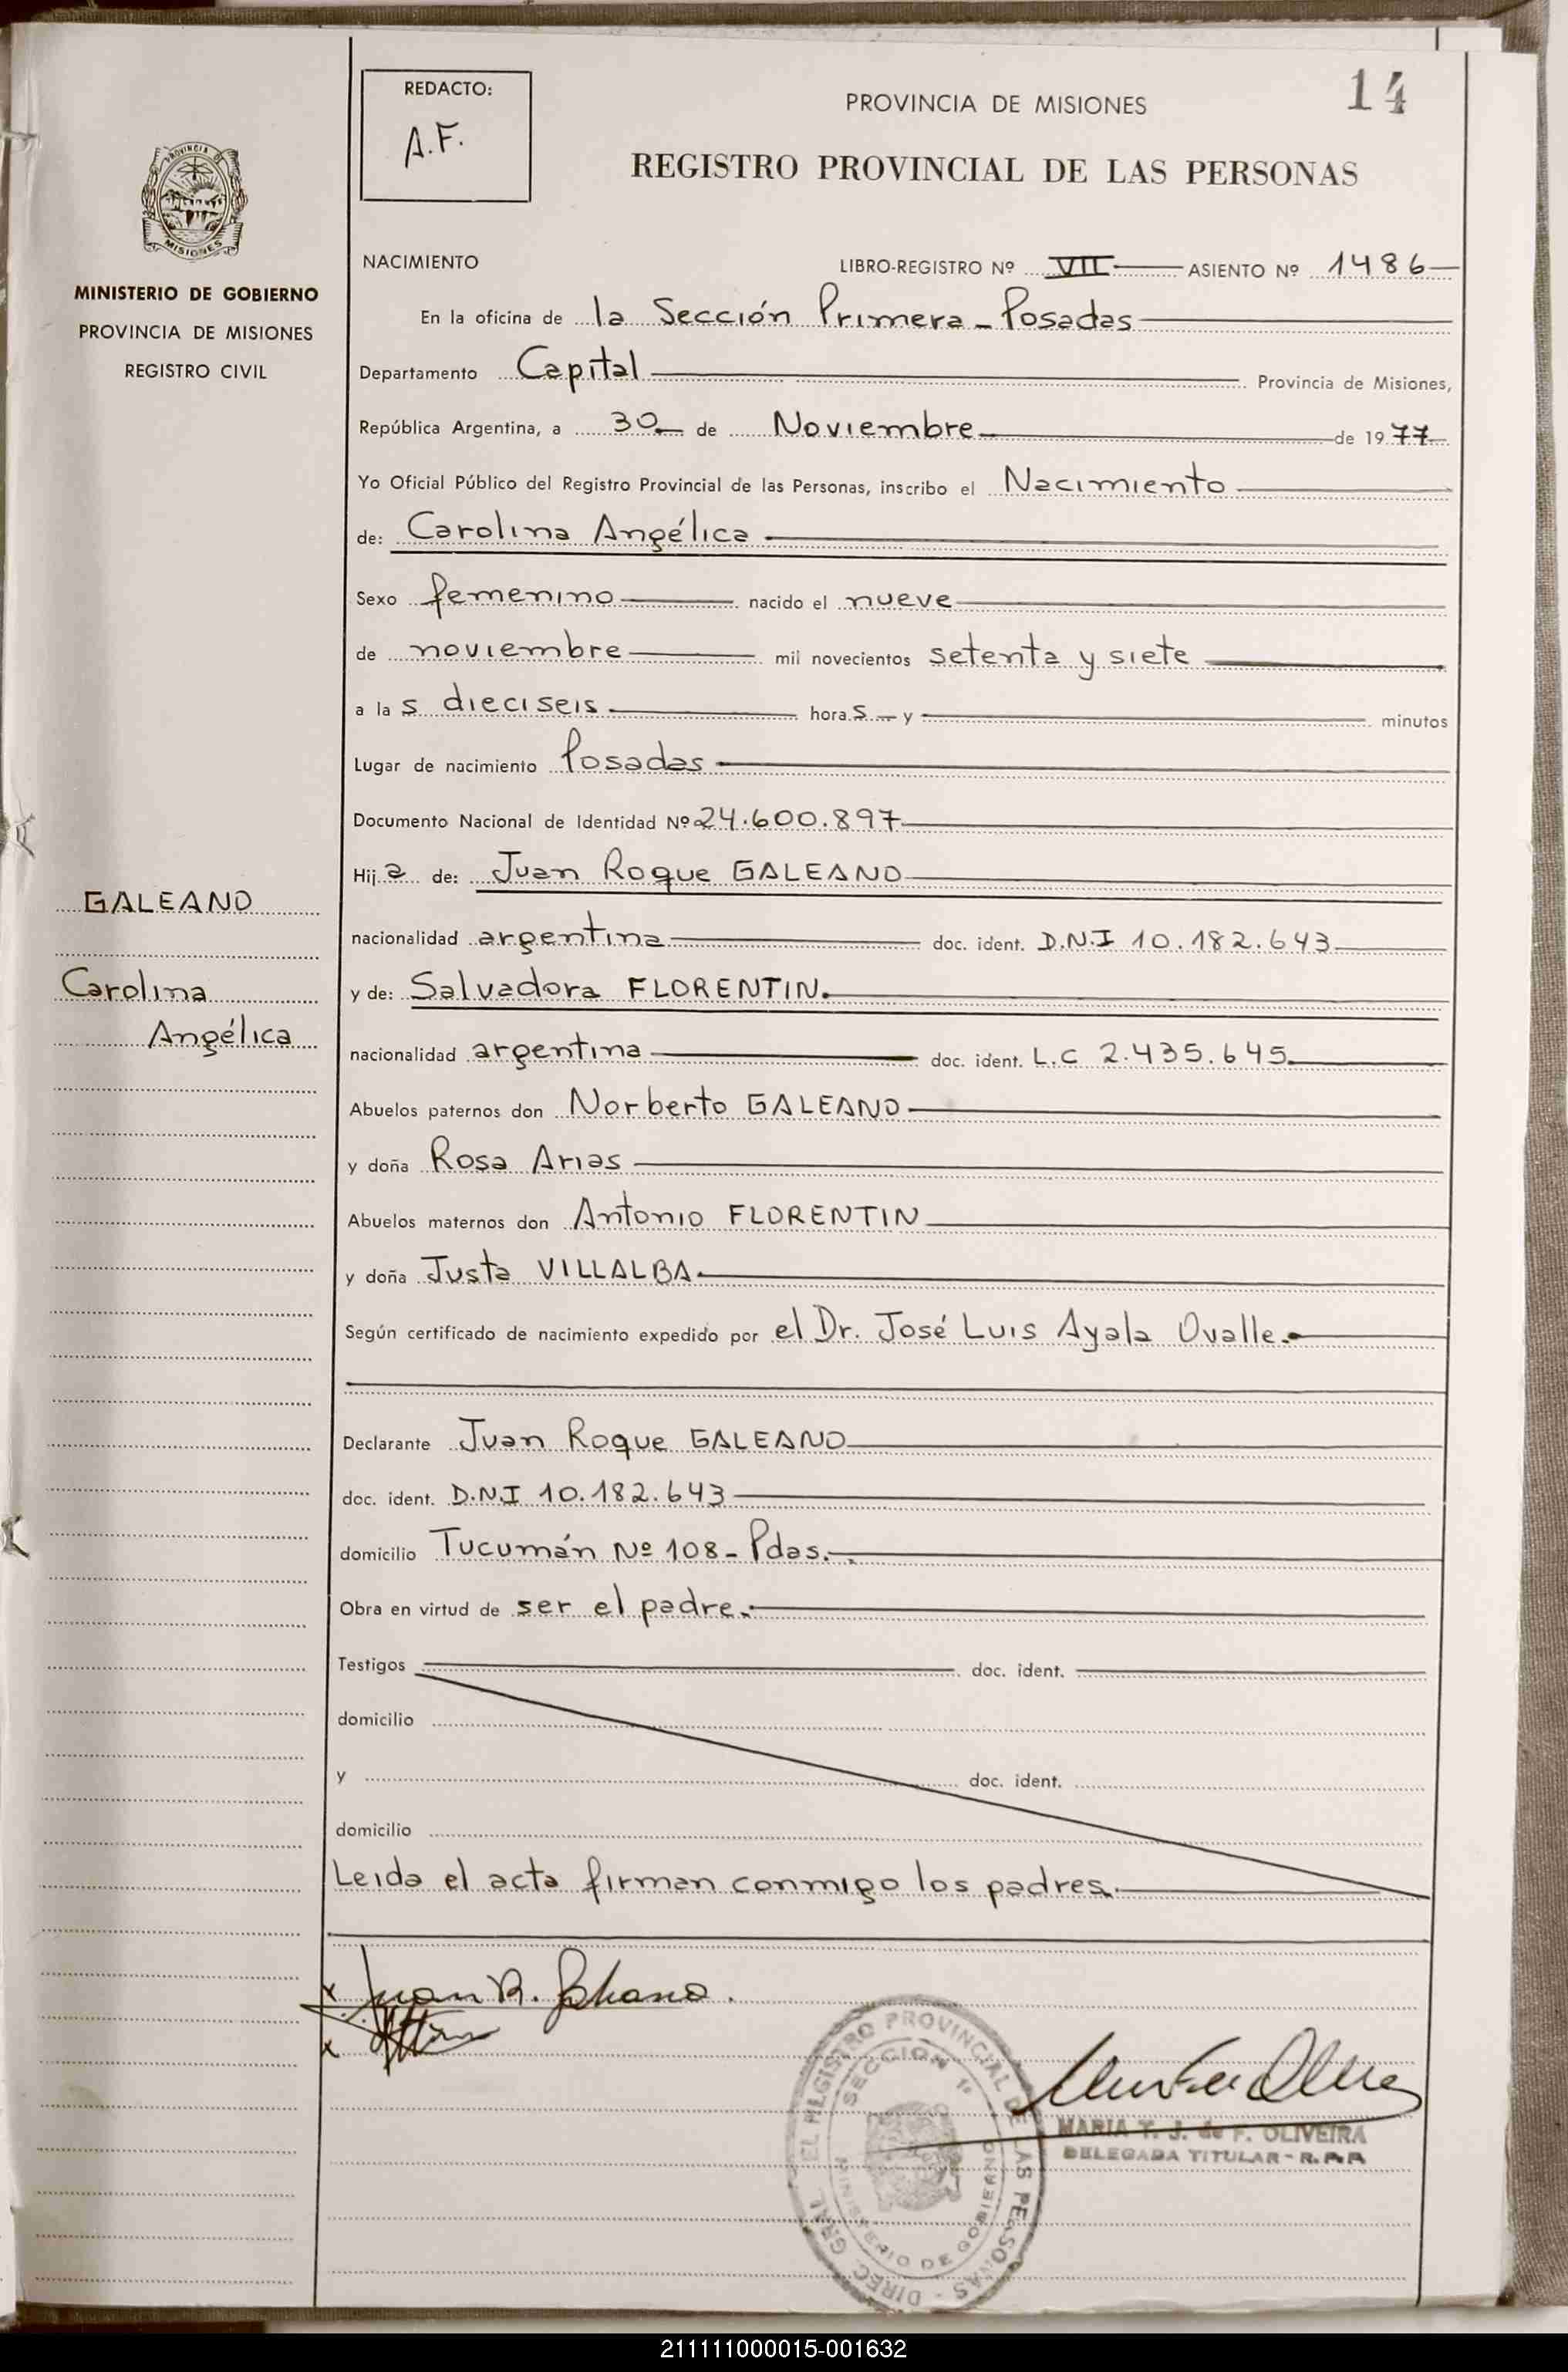 14
REDACTO:
A.F.
PROVINCIA DE MISIONES
REGISTRO PROVINCIAL DE LAS PERSONAS
PROVINCIA DE
MISIONES
MINISTERIO DE GOBIERNO
PROVINCIA DE MISIONES
REGISTRO CIVIL
GALEANO
Carolina
Angélica
NACIMIENTO LIBRO-REGISTRO Nº VII ASIENTO Nº 1486
En la oficina de la Sección Primera - Posadas
Departamento Capital Provincia de Misiones,
República Argentina, a 30 de Noviembre de 1977
Yo Oficial Público del Registro Provincial de las Personas, inscribo el Nacimiento
de: Carolina Angélica
Sexo femenino nacido el nueve
de noviembre mil novecientos setenta y siete
a las dieciseis horas y minutos
Lugar de nacimiento Posadas
Documento Nacional de Identidad Nº 24.600.897
Hija de: Juan Roque GALEANO
nacionalidad argentina doc. ident. D.N.I 10.182.643
y de: Salvadora FLORENTIN.
nacionalidad argentina doc. ident. L.C 2.435.645
Abuelos paternos don Norberto GALEANO
y doña Rosa Arias
Abuelos maternos don Antonio FLORENTIN
y doña Justa VILLALBA
Según certificado de nacimiento expedido por el Dr. José Luis Ayala Ovalle.
Declarante Juan Roque GALEANO
doc. ident. D.N.I 10.182.643
domicilio Tucumán Nº 108 - Pdas.
Obra en virtud de ser el padre.
Testigos doc. ident.
domicilio
y doc. ident.
domicilio
Leida el acta firman conmigo los padres.
x Juan R. Galeano.
x
DIREC. GRAL. EL REGISTRO PROVINCIAL DE LAS PERSONAS
SECCION 1º
MINISTERIO DE GOBIERNO
MARIA T. J. de F. OLIVEIRA
DELEGADA TITULAR - R.P.P.
211111000015-001632